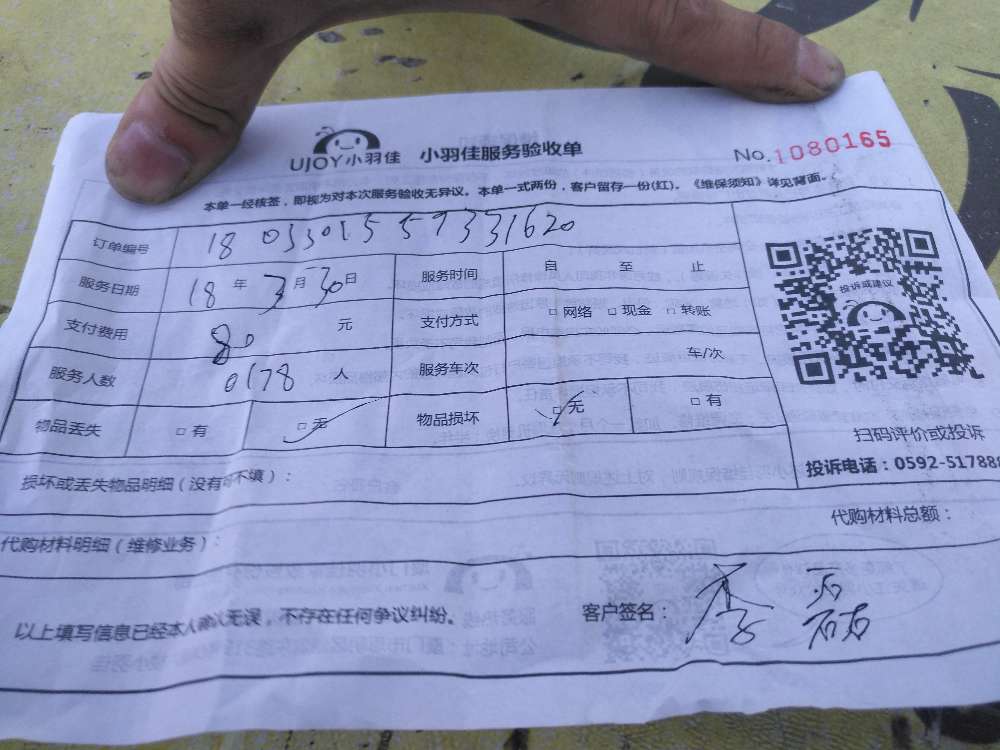 UJOY小羽佳 小羽佳服务验收单 No.1080165
本单一经核签，即视为对本次服务验收无异议。本单一式两份，客户留存一份(红)。《维保须知》详见背面。
订单编号 18 0330155 59331620
服务日期 18 年 3 月 30 日 服务时间 自 至 止
支付费用 80 元 支付方式 □ 网络 □ 现金 □ 转账
服务人数 0178 人 服务车次 车/次
物品丢失 □ 有 □ 无 物品损坏 □ 无 □ 有
投诉或建议
扫码评价或投诉
投诉电话：0592-517888
损坏或丢失物品明细（没有可不填）：
代购材料明细（维修业务）： 代购材料总额：
以上填写信息已经本人确认无误，不存在任何争议纠纷。 客户签名： 李